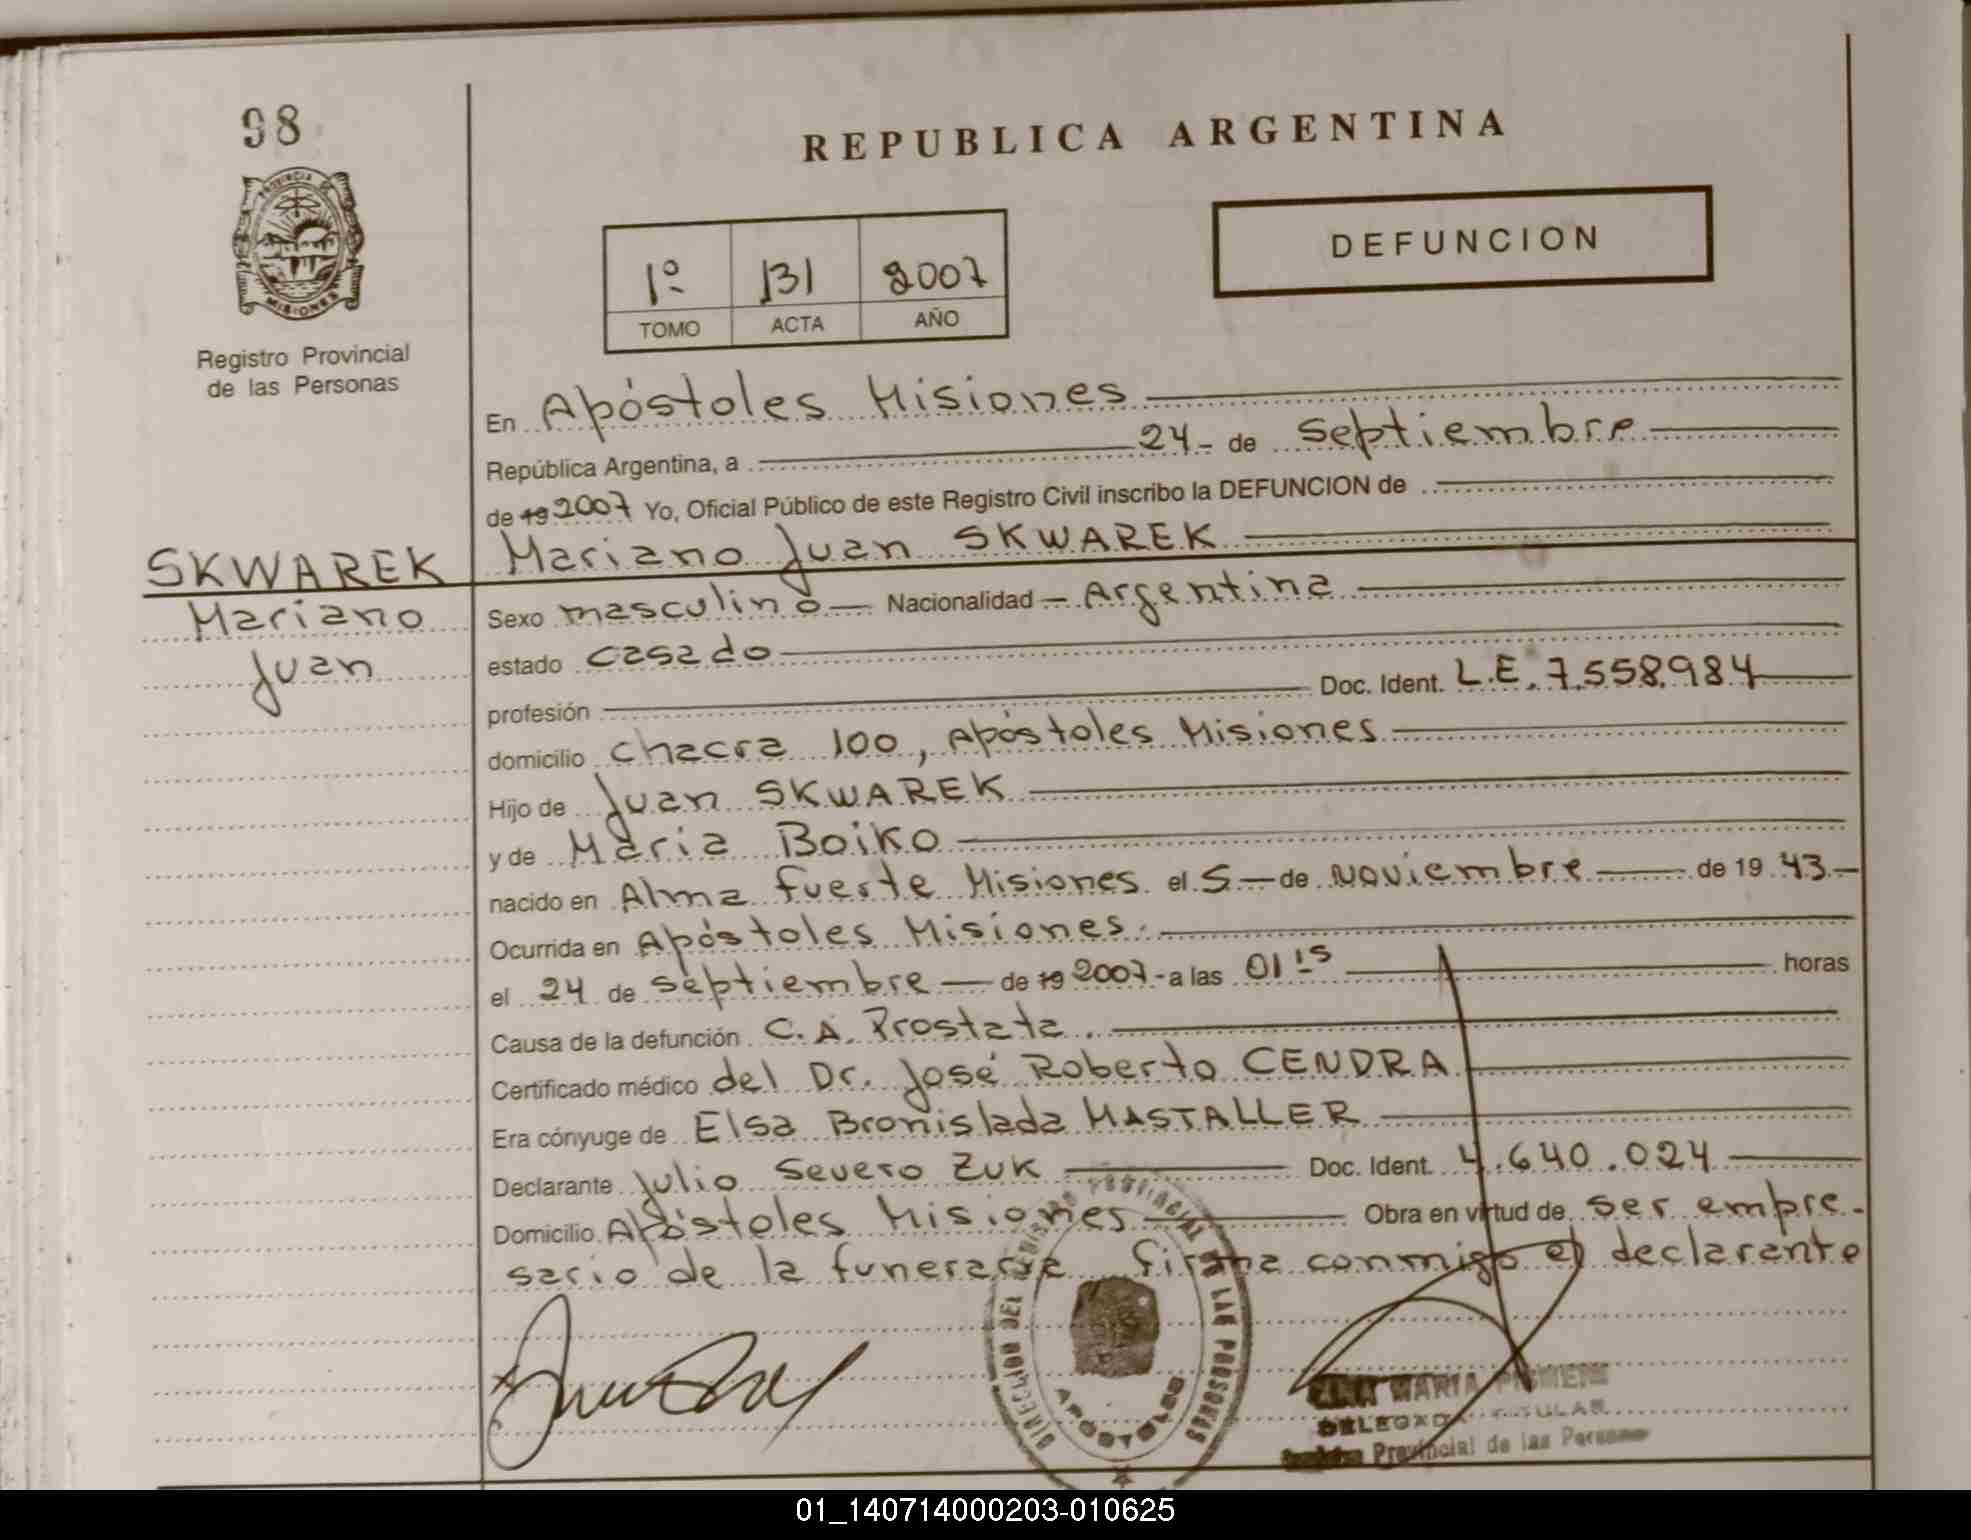 98
PROVINCIA DE
MISIONES
Registro Provincial
de las Personas
REPUBLICA ARGENTINA
1º 131 2007
TOMO ACTA AÑO
DEFUNCION
En Apóstoles Misiones
República Argentina, a 24- de septiembre
de 19 2007 Yo, Oficial Público de este Registro Civil inscribo la DEFUNCION de
SKWAREK
Mariano
Juan
Mariano Juan SKWAREK
Sexo masculino Nacionalidad Argentina
estado casado
profesión Doc. Ident. L.E. 7.558.984
domicilio chacra 100, Apóstoles Misiones
Hijo de Juan SKWAREK
y de Maria Boiko
nacido en Alma fuerte Misiones el 5 de Noviembre de 19 43
Ocurrida en Apóstoles Misiones.
el 24 de septiembre de 19 2007 a las 01 15 horas
Causa de la defunción C.A. Prostata.
Certificado médico del Dr. José Roberto CENDRA
Era cónyuge de Elsa Bronislada MASTALLER
Declarante Julio Severo ZUK Doc. Ident. 4.640.024
Domicilio Apóstoles Misiones Obra en virtud de ser empre-
sario de la funeraria firma conmigo el declarante
DIRECCION DEL REGISTRO PROVINCIAL DE LAS PERSONAS
APOSTOLES
MARIA
Provincial de las Personas
01_140714000203-010625